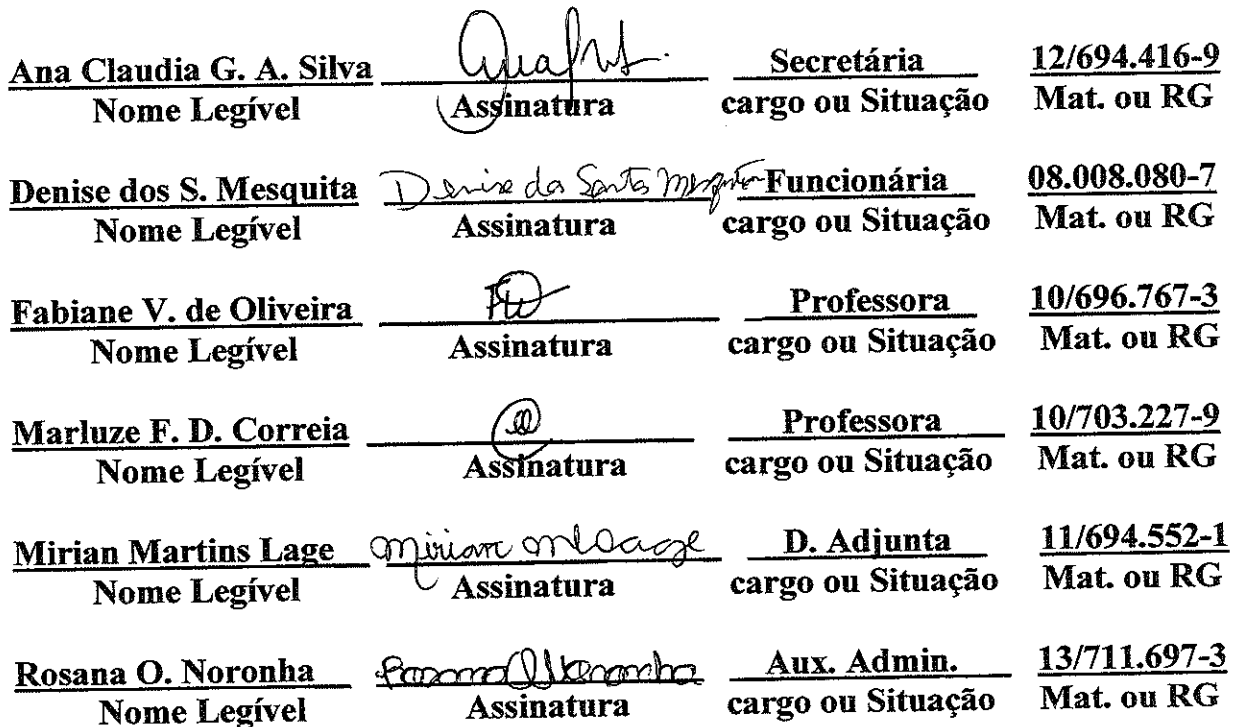 Ana Claudia G. A. Silva Secretária 12/694.416-9
Nome Legível Assinatura cargo ou Situação Mat. ou RG
Denise dos S. Mesquita Denise dos Santos Mesquita Funcionária 08.008.080-7
Nome Legível Assinatura cargo ou Situação Mat. ou RG
Fabiane V. de Oliveira Professora 10/696.767-3
Nome Legível Assinatura cargo ou Situação Mat. ou RG
Marluze F. D. Correia Professora 10/703.227-9
Nome Legível Assinatura cargo ou Situação Mat. ou RG
Mirian Martins Lage Mirian M Lage D. Adjunta 11/694.552-1
Nome Legível Assinatura cargo ou Situação Mat. ou RG
Rosana O. Noronha Rosana O Noronha Aux. Admin. 13/711.697-3
Nome Legível Assinatura cargo ou Situação Mat. ou RG